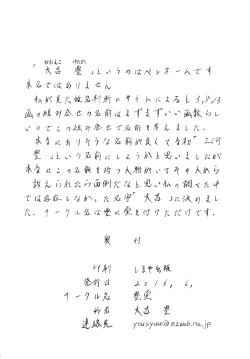 おおよど ゆたか
「大呂 豊」というのはペンネームです
本名ではありません
私が見た姓名判断のサイトによると3,8,13
画の組み合せの名前はまずまずいい画数らし
いのでこの組み合せで名前を考えました。
本当にありそうな名前が良くて最初「三河
豊」という名前にしようかと思いましたが
本当にこの名前を持つ人物がいてその人から
訴えられたら面倒だなと思い私の調べた中
では存在しなかった名字「大呂」に決めまし
た。サークル名は豊に愛を付けただけです。
奥 付
印刷 しまや出版
発行日 2016,6,
サークル名 豊愛
作者 大呂 豊
連絡先 yousyuu@ezweb.ne.jp